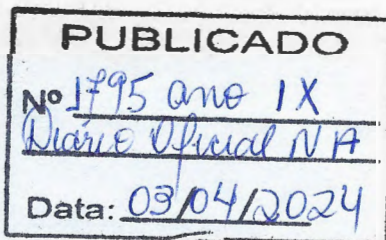 PUBLICADO
Nº 1795 ano IX
Diário Oficial NA
Data: 03/04/2024